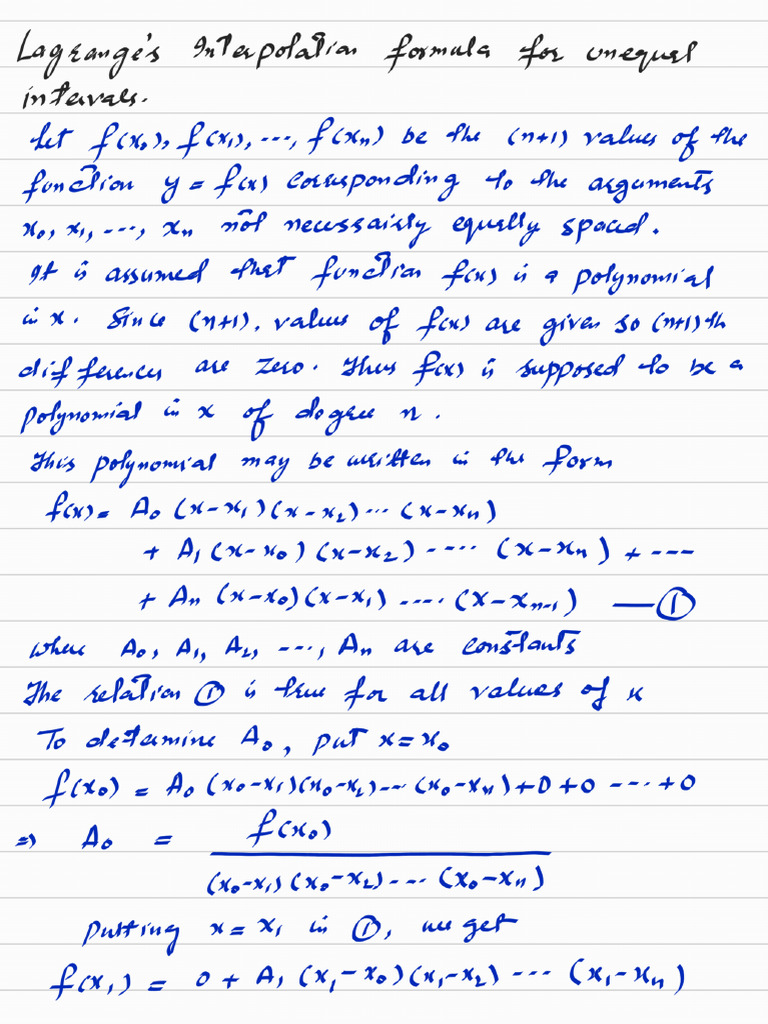 Lagrange's Interpolation formula for unequal
intervals.
Let f(x₀), f(x₁), ---, f(xₙ) be the (n+1) values of the
function y = f(x) corresponding to the arguments
x₀, x₁, ---, xₙ not necessairly equally spaced.
It is assumed that function f(x) is a polynomial
in x. Since (n+1), values of f(x) are given so (n+1)th
differences are zero. Thus f(x) is supposed to be a
polynomial in x of degree n.
This polynomial may be written in the form
f(x) = A₀ (x-x₁)(x-x₂)--- (x-xₙ)
+ A₁ (x-x₀) (x-x₂) ---- (x-xₙ) + ---
+ Aₙ (x-x₀)(x-x₁) ---- (x-xₙ₋₁) —①
where A₀, A₁, A₂, ---, Aₙ are constants
The relation ① is true for all values of x
To determine A₀, put x=x₀
f(x₀) = A₀ (x₀-x₁)(x₀-x₂)--- (x₀-xₙ)+0+0 ---+0
⇒ A₀ = f(x₀)
(x₀-x₁) (x₀-x₂)--- (x₀-xₙ)
Putting x = x₁ in ①, we get
f(x₁) = 0 + A₁ (x₁-x₀)(x₁-x₂) --- (x₁-xₙ)